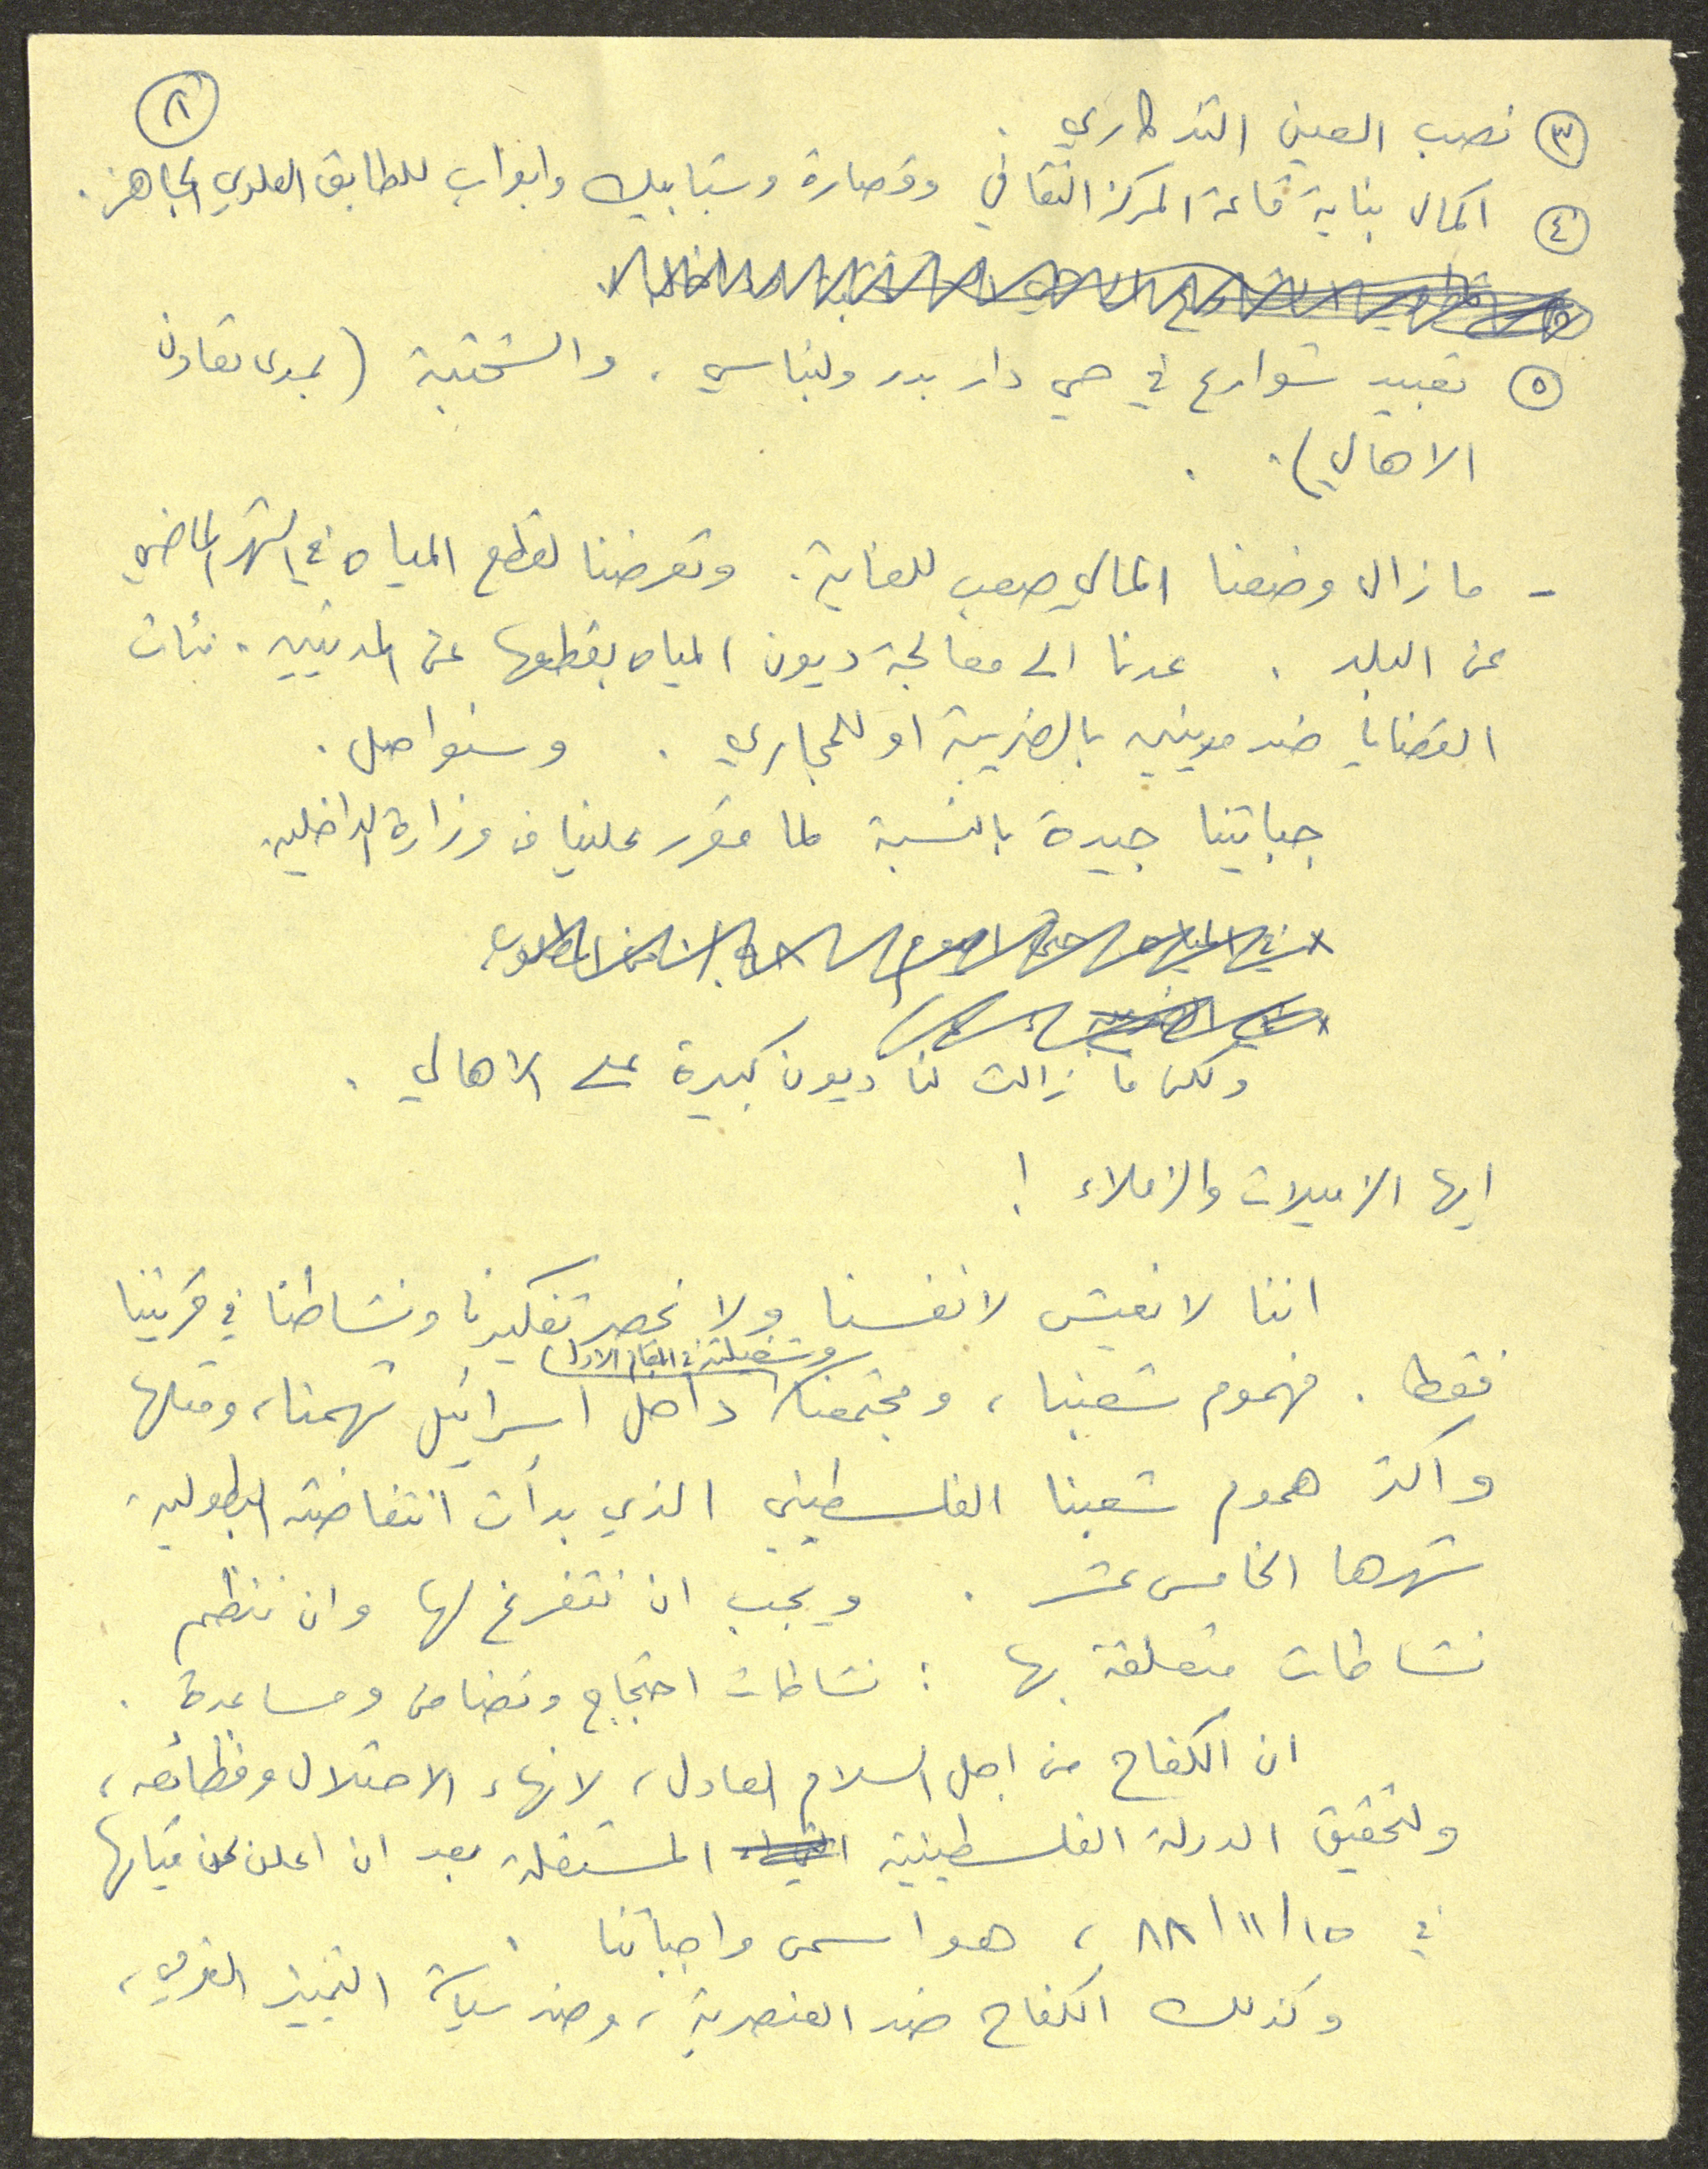 ٨
٣ نصب العين التذكاري .
٤ اكمال بناية قاعة المركز الثقافي وقصارة وشبابيك وابواب للطابق العلوي الجاهز .
٥ تعبيد شوارع في حي دار بدر ولبناسي . والشحتية ( بمدى تعاون
الاهالي ) .
- ما زال وضعنا المالي صعب للغاية . وتعرضنا لقطع المياه في الشهر الماضي
عن البلد . عدنا الى معالجة ديون المياه بقطعها عن المدينين . مئات
القضايا ضد مدينين بالضريبة او للمجاري . وسنواصل .
جبايتنا جيدة بالنسبة لما مقرر علينا من وزارة الداخلية
ولكن ما زالت لنا ديون كبيرة على الاهالي .
ايها الزميلات والزملاء !
اننا لا نعيش لانفسنا ولا نحصر تفكيرنا ونشاطنا في قريتنا
فقط . فهموم شعبنا ، ومجتمعنا داخل اسرائيل تهمنا ، ومثلها
واكثر هموم شعبنا الفلسطيني الذي بدأت انتفاضته البطولية
شهرها الخامس عشر . ويجب ان نتفرغ لها وان ننظم
نشاطات متعلقة بها : نشاطات احتجاج وتضامن ومساعدة .
ان الكفاح من اجل السلام العادل ، لانهاء الاحتلال وفظائعه ،
ولتحقيق الدولة الفلسطينية المستقلة بعد ان اعلن عن قيامها
في ١٥/١١/٨٨ ، هو اسمى واجباتنا .
وكذلك الكفاح ضد العنصرية ، وضد سياسة التمييز القومي ،